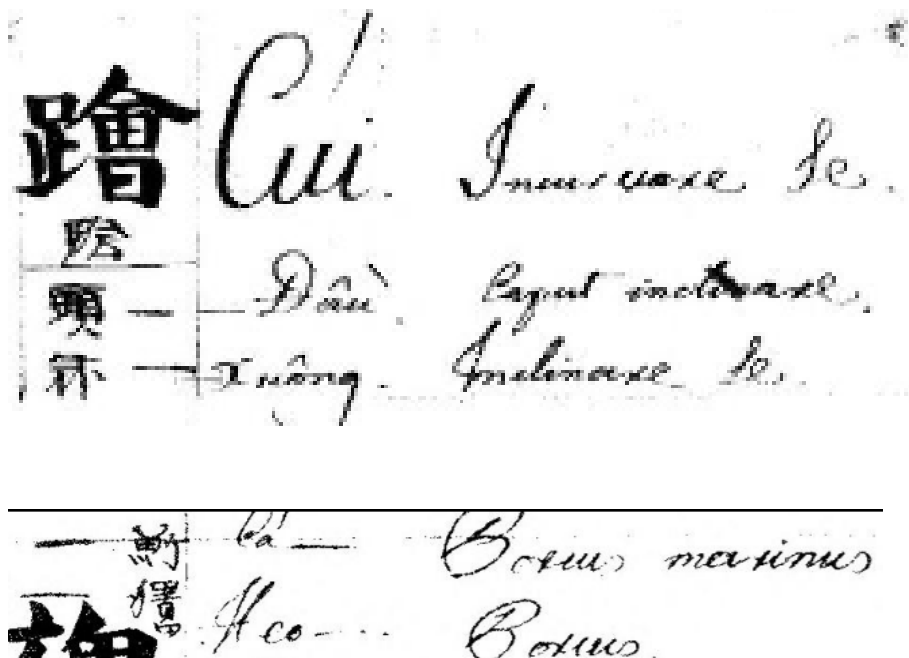 Cúi. Incurvare se.
頭 — Đầu. Caput inclinare.
— Xuống. Inclinare se.
— Cá — Porcus marinus
— Heo — Porcus